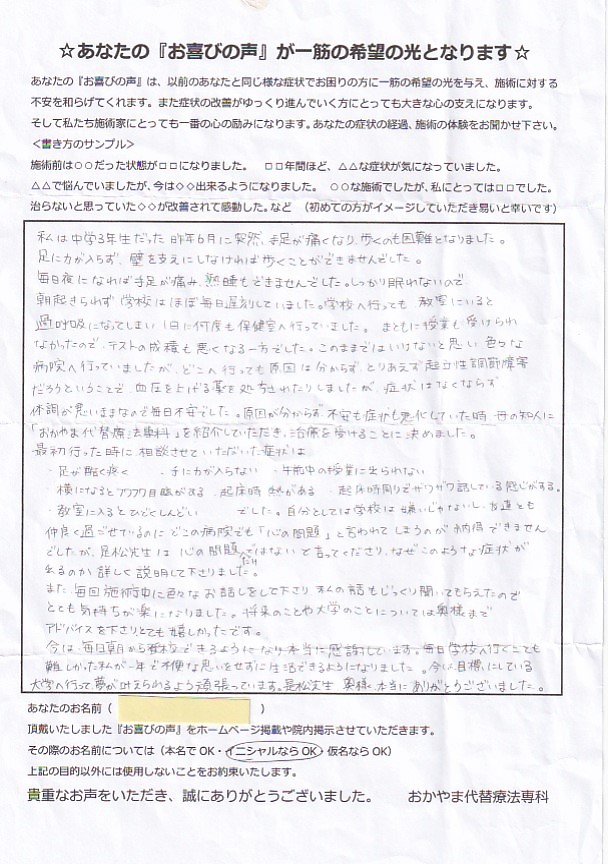 ☆あなたの『お喜びの声』が一筋の希望の光となります☆
あなたの『お喜びの声』は、以前のあなたと同じ様な症状でお困りの方に一筋の希望の光を与え、施術に対する
不安を和らげてくれます。また症状の改善がゆっくり進んでいく方にとっても大きな心の支えになります。
そして私たち施術家にとっても一番の心の励みになります。あなたの症状の経過、施術の体験をお聞かせ下さい。
＜書き方のサンプル＞
施術前は○○だった状態が□□になりました。　□□年間ほど、△△な症状が気になっていました。
△△で悩んでいましたが、今は◇◇出来るようになりました。　○○な施術でしたが、私にとっては□□でした。
治らないと思っていた◇◇が改善されて感動した。など　（初めての方がイメージしていただき易いと幸いです）
私は中学3年生だった昨年6月に突然、手足が痛くなり、歩くのも困難となりました。
足に力が入らず、壁を支えにしなければ歩くことができませんでした。
毎日夜になれば手足が痛み、熟睡もできませんでした。しっかり眠れないので
朝起きられず学校はほぼ毎日遅刻していました。学校へ行っても、教室にいると
過呼吸になってしまい1日に何度も保健室へ行っていました。まともに授業も受けられ
なかったので、テストの成績も悪くなる一方でした。このままではいけないと思い色々な
病院へ行っていましたが、どこへ行っても原因は分からず、とりあえず起立性調節障害
だろうということで、血圧を上げる薬を処方されたりしましたが、症状はなくならず
体調が悪いままなので毎日不安でした。原因が分からず不安も症状も悪化していた時、母の知人に
「おかやま代替療法専科」を紹介していただき、治療を受けることに決めました。
最初行った時に相談させていただいた症状は
・足が酷く疼く　・手に力が入らない　・午前中の授業に出られない
・横になるとフワフワ目眩がある　・起床時熱がある　・起床時周りでザワザワ話している感じがする。
・教室に入るとひどくしんどい　でした。自分としては学校は嫌いじゃないし、友達とも
仲良く過ごせているのにどこの病院でも「心の問題」と言われてしまうのが納得できません
でしたが、是松先生は心の問題だけではないと言ってくださり、なぜこのような症状が
出るのか詳しく説明して下さりました。
また、毎回施術中に色々なお話しをして下さり私の話もじっくり聞いてもらえたので
とても気持ちが楽になりました。将来のことや大学のことについては奥様まで
アドバイスを下さりとても嬉しかったです。
今は、毎日朝から登校できるようになり本当に感謝しています。毎日学校へ行くことも
難しかった私が一年で不便な思いをせずに生活できるようになりました。今は目標にしている
大学へ行って、夢が叶えられるよう頑張っています。是松先生、奥様、本当にありがとうございました。
あなたのお名前（　　　　　　）
頂戴いたしました『お喜びの声』をホームページ掲載や院内掲示させていただきます。
その際のお名前については（本名で OK・イニシャルなら OK・仮名なら OK）
上記の目的以外には使用しないことをお約束いたします。
貴重なお声をいただき、誠にありがとうございました。　　おかやま代替療法専科